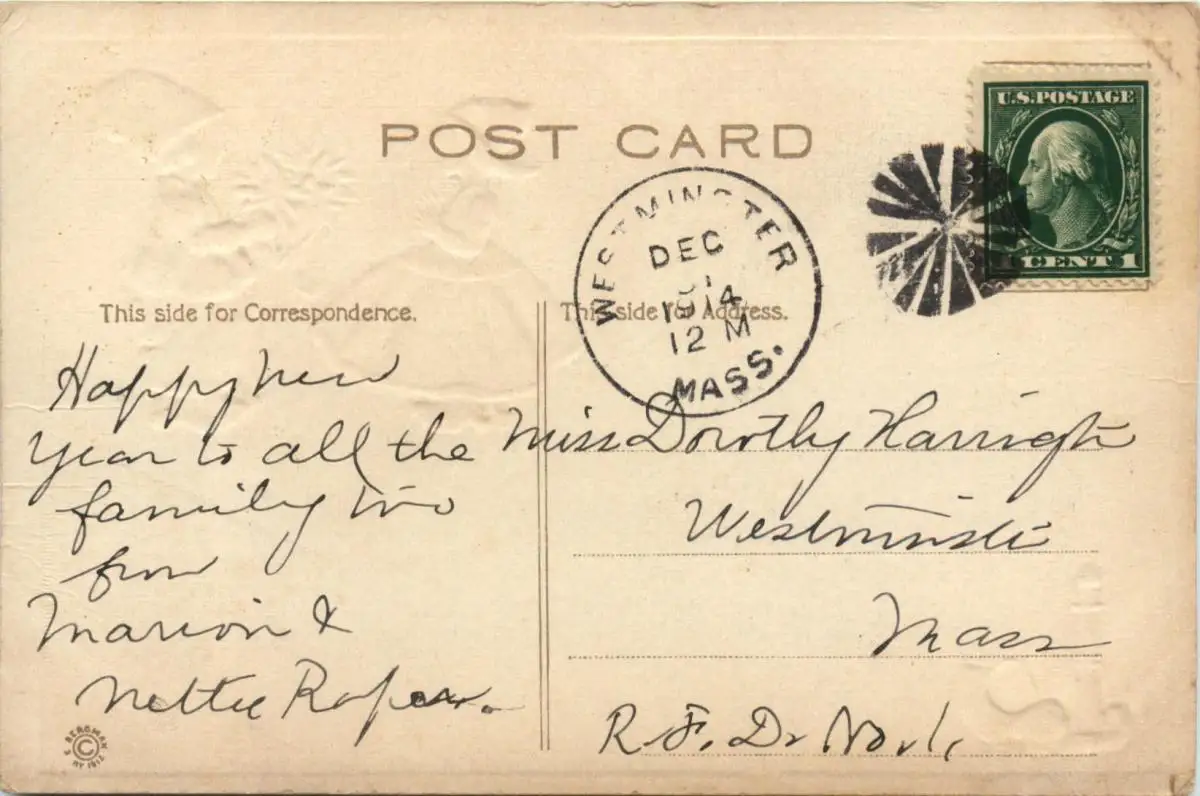 POST CARD
U.S. POSTAGE
1 CENT 1
WESTMINSTER
DEC
31
1914
12 M
MASS.
This side for Correspondence.
This side for Address.
Happy New
Year to all the
family
from
Marion &
Nettie Roper.
Miss Dorothy Harrington
Westminster
Mass
R. F. D.
© BERGMAN
NY 1912